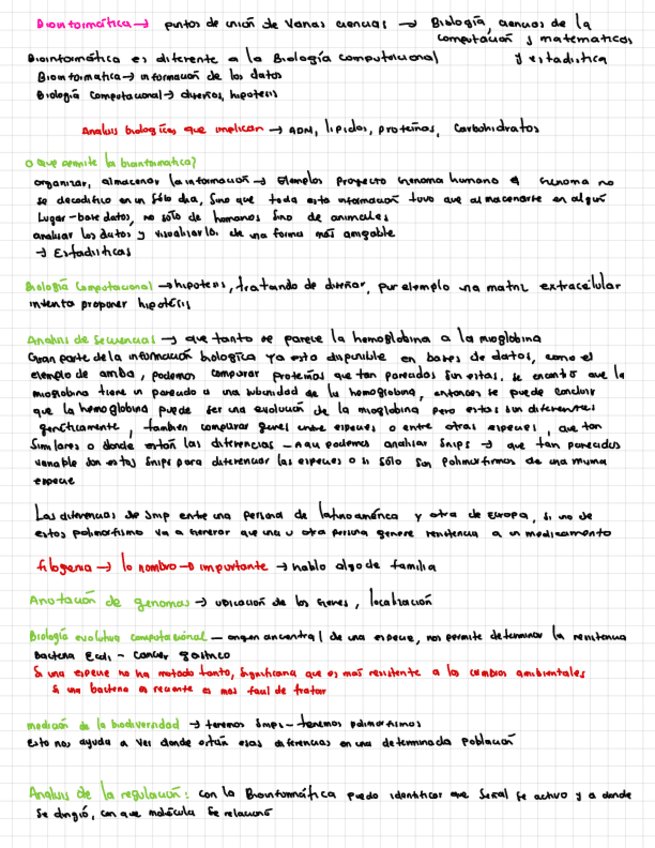 Bioinformática → puntos de unión de varias ciencias → Biología, ciencias de la
computación y matematicas
y estadistica
Bioinformática es diferente a la Biología computacional
Bioinformatica → informacion de los datos
Biología Computacional → diseños, hipotesis
Analisis biologicos que implican → ADN, lipidos, proteinas, carbohidratos
que permite la bioinformatica?
organizar, almacenar la informacion → Ejemplos Proyecto Genoma humano Genoma no
se decodifico en un sólo dia, sino que toda esta informacion tuvo que almacenarse en algún
lugar - base datos, no sólo de humanos sino de animales
analizar los datos y visualizarlos de una forma más amigable
→ Estadisticas
Biología Computacional → hipotesis, tratando de diseñar, por ejemplo una matriz extracelular
intenta proponer hipotesis
Analisis de Secuencias → que tanto se parece la hemoglobina a la mioglobina
Gran parte de la información biologica ya esta disponible en bases de datos, como el
ejemplo de arriba, podemos comparar proteinas que tan parecidas son estas, se encontró que la
mioglobina tiene un parecido a una subunidad de la hemoglobina, entonces se puede concluir
que la hemoglobina puede ser una evolución de la mioglobina pero estas son diferentes
genéticamente, tambien comparar genes entre especies o entre otras especies, que tan
similares o donde están las diferencias - Aqui podemos analizar Snips → que tan parecidos
variable son estos Snips para diferenciar las especies o si sólo son polimorfismos de una misma
especie
Las diferencias de snip entre una persona de latinoamérica y otra de Europa, si uno de
estos polimorfismo va a generar que una u otra persona genere resistencia a un medicamento
filogenia → lo nombro → importante → hablo algo de familia
Anotación de genomas → ubicación de los genes, localización
Biología evolutiva computacional - origen ancentral de una especie, nos permite determinar la resistencia
bacteria E.coli - Cancer gastrico
Si una especie no ha mutado tanto, significaria que es mas resistente a los cambios ambientales
Si una bacteria es reciente es mas facil de tratar
medición de la biodiversidad → tenemos snips - tenemos polimorfismos
Esto nos ayuda a ver donde están esas diferencias en una determinada población
Analisis de la regulación: con la Bioinformática puedo identificar que señal se activo y a donde
se dirigió, con que molécula se relacionó